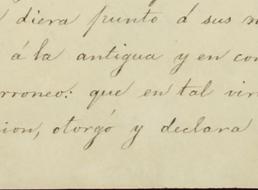 diera punto á sus m
á la antigua y en con
erroneo: que en tal vir
ion, otorgó y declara